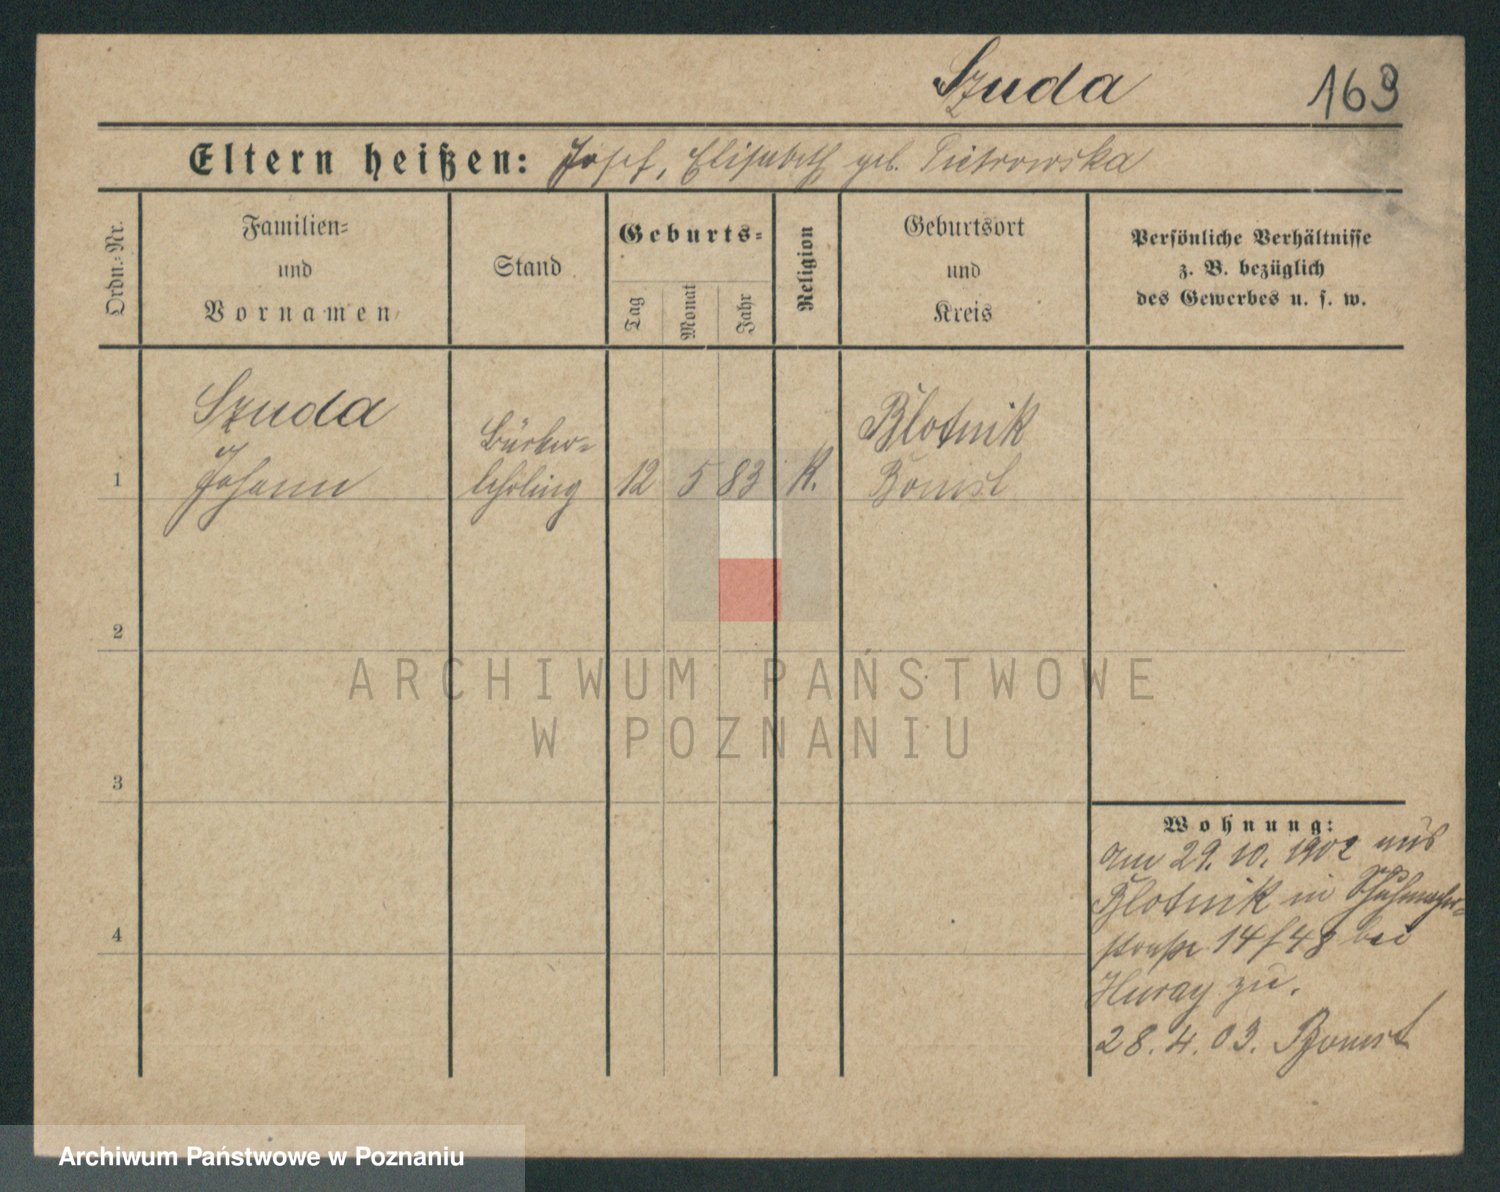 Szuda
163
Eltern heißen: Josef, Elisabeth geb. Pietrowska
Ordn.-Nr.
Familien-
und
Vornamen
Stand
Geburts-
Tag
Monat
Jahr
Religion
Geburtsort
und
Kreis
Persönliche Verhältnisse
z. B. bezüglich
des Gewerbes u. s. w.
1
Szuda
Johann
lehrling
12
5
83
K.
Blotnik
Bomst
2
3
4
Wohnung:
Am 29. 10. 1902 aus
Blotnik in Schuhmacher-
straße 14/48 bei
zu.
28. 4. 03. Bomst
ARCHIWUM PAŃSTWOWE
W POZNANIU
Archiwum Państwowe w Poznaniu